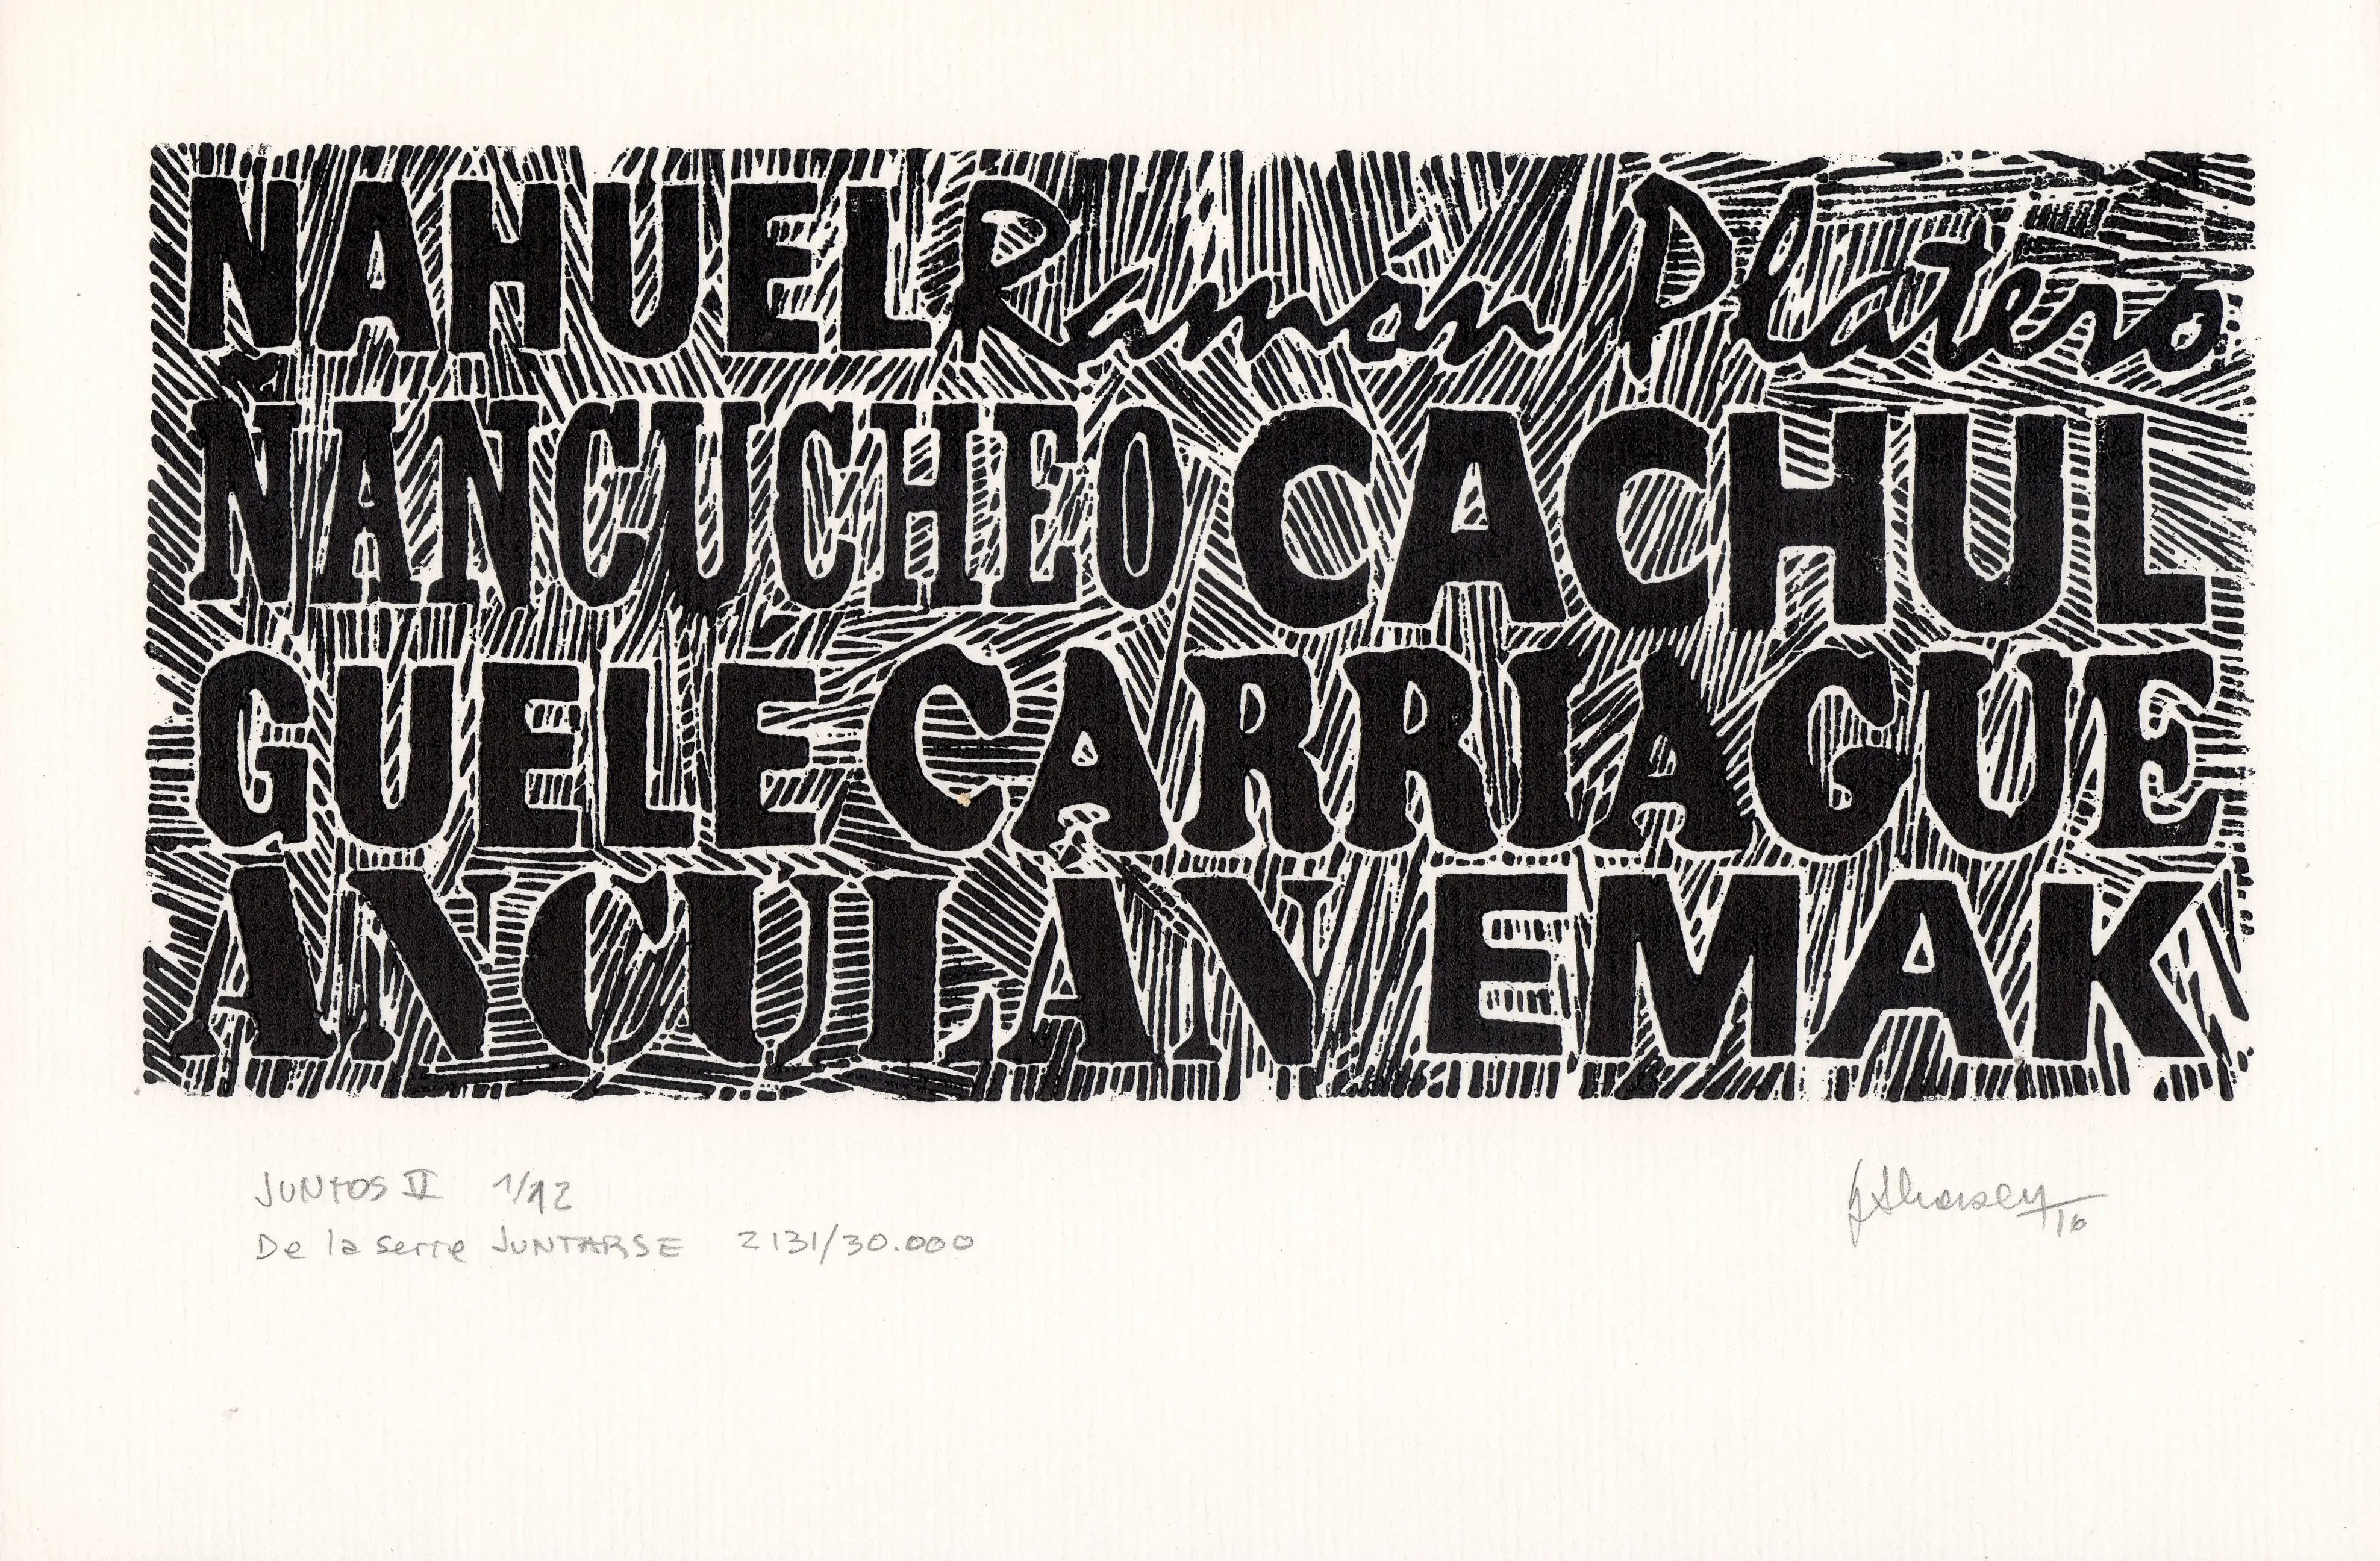 NAHUEL Ramon Platero
ÑANCUCHEO CACHUL
GUELE CARRIAGUE
ANCULAN EMAK
JUNTOS II 1/12
De la serie JUNTARSE 2131/30.000
/16